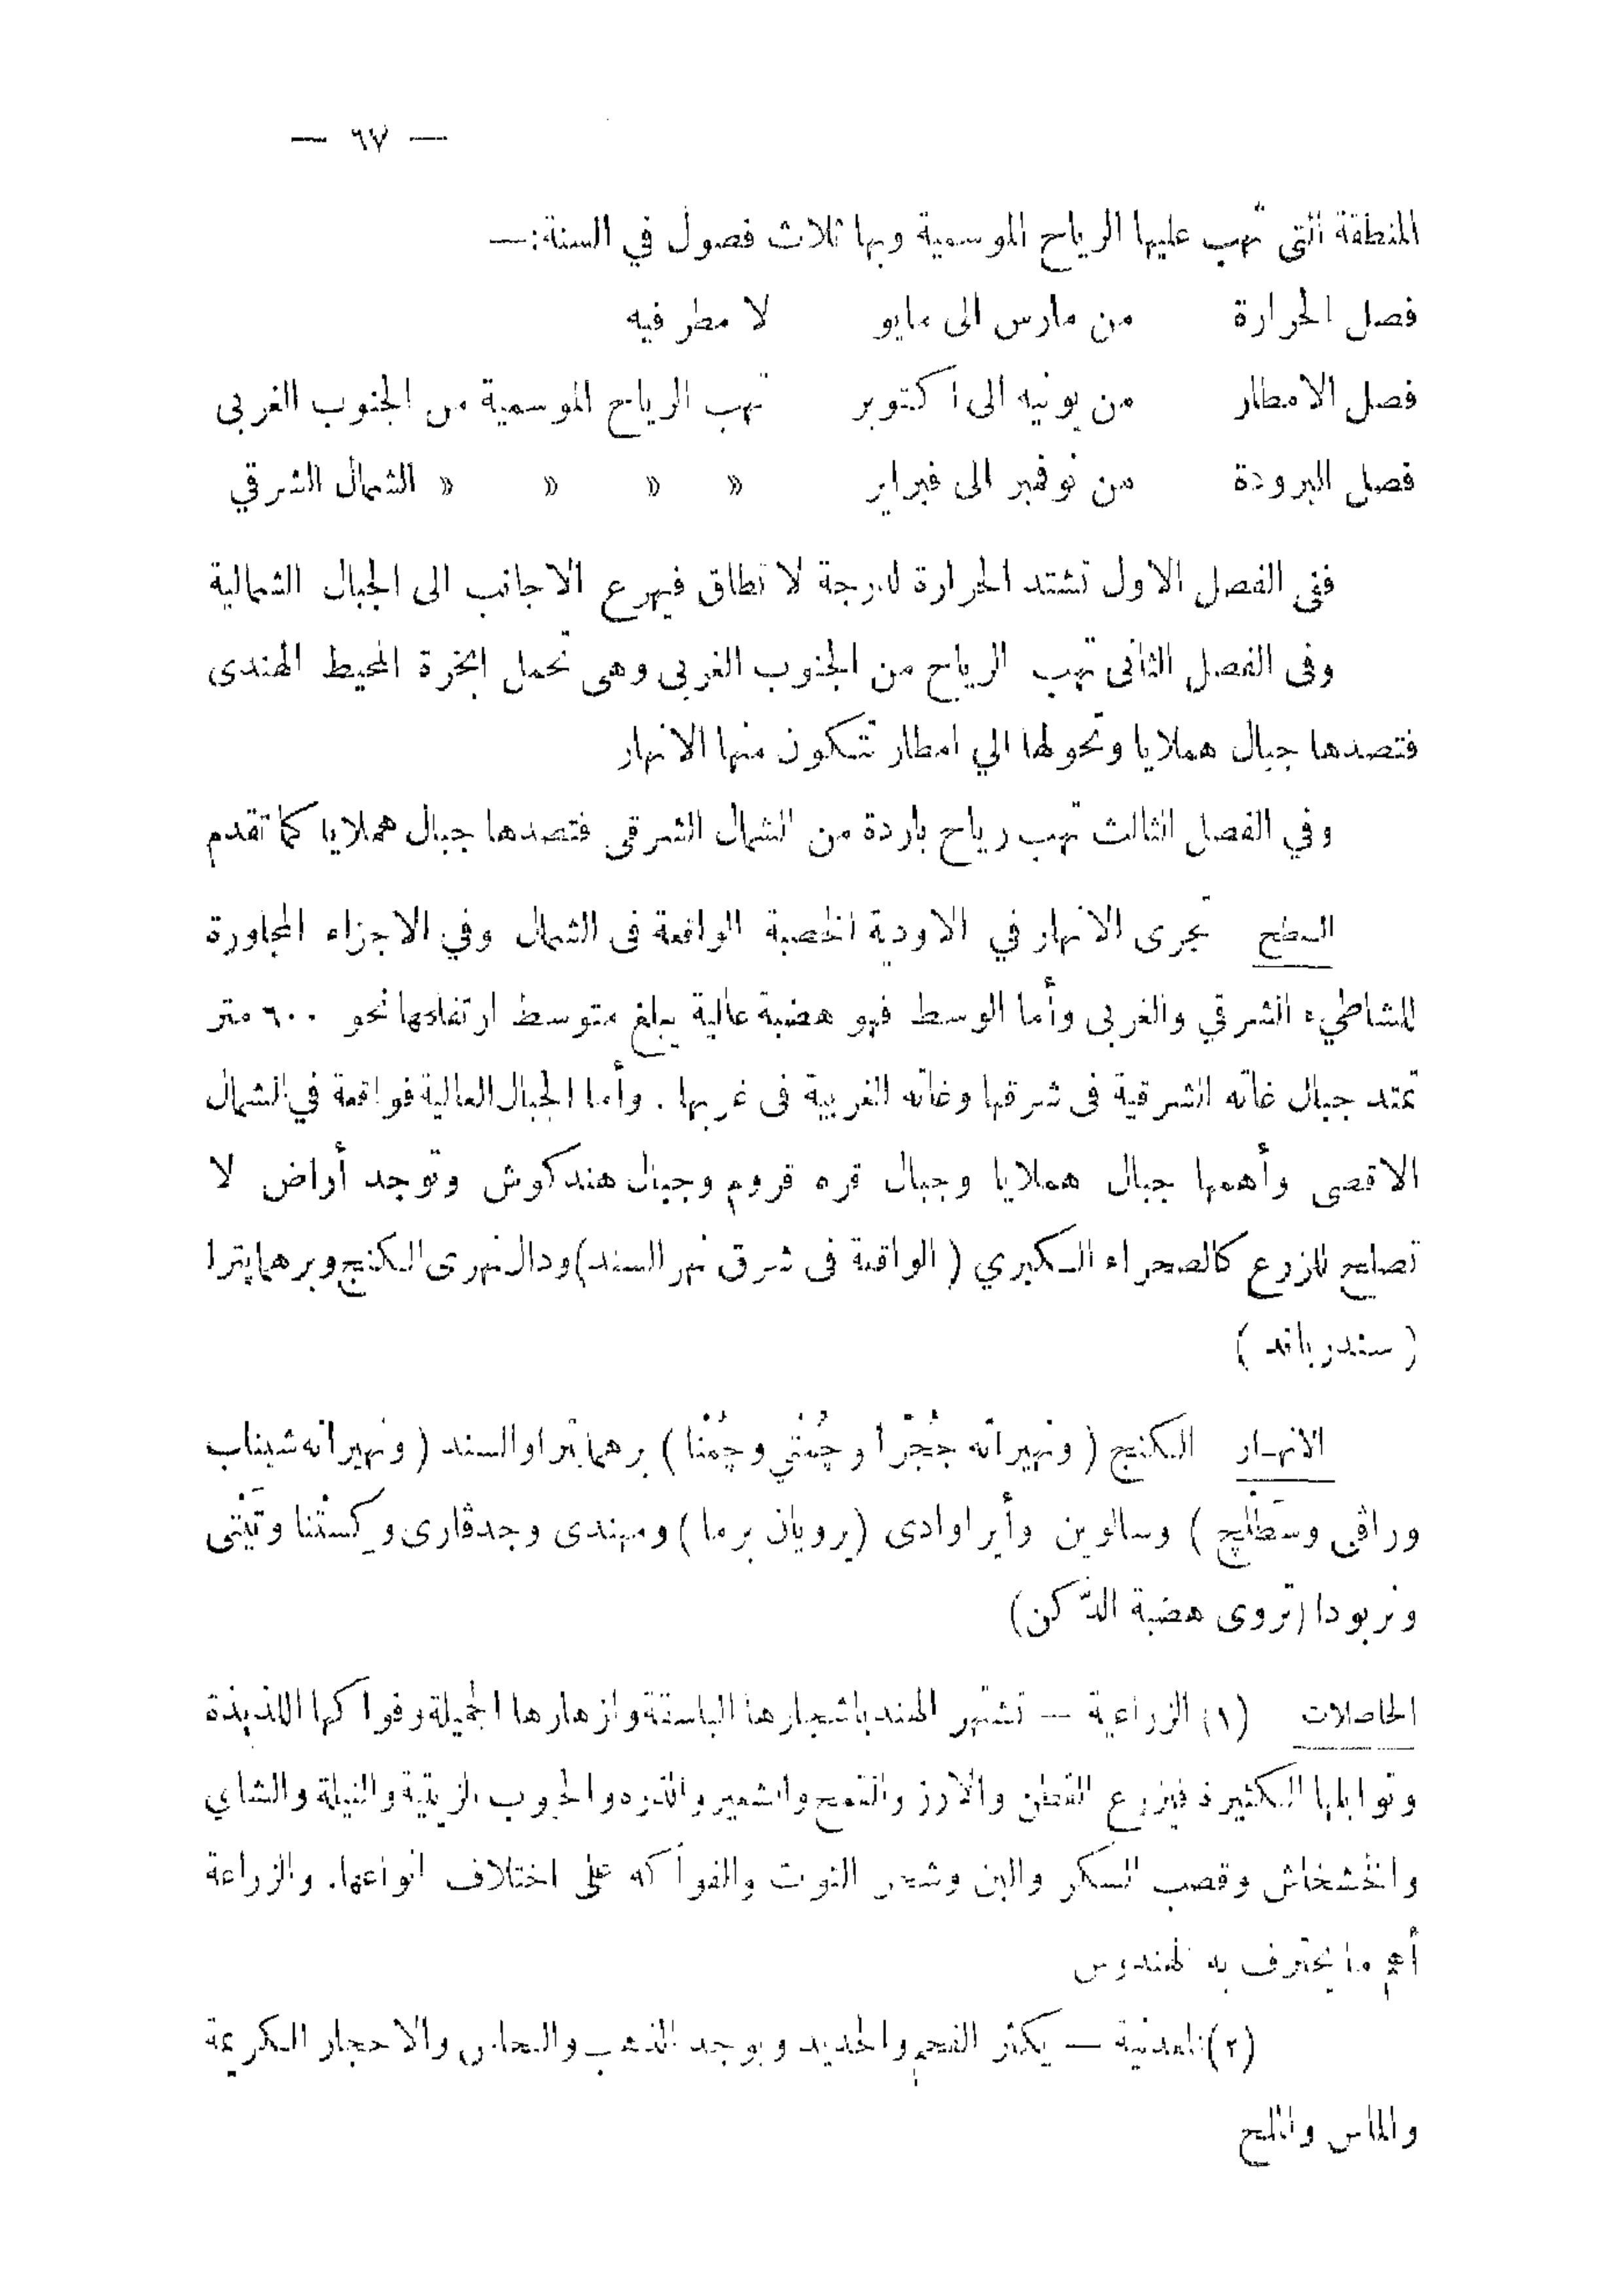 — ٦٧ —
المنطقة التى تهب عليها الرياح الموسمية وبها ثلاث فصول في السنة:—
فصل الحرارة من مارس الى مايو لا مطر فيه
فصل الامطار من يونيه الى اكتوبر تهب الرياح الموسمية من الجنوب الغربى
فصل البرودة من نوفمبر الى فبراير » » » » الشمال الشرقي
ففى الفصل الاول تشتد الحرارة لدرجة لا تطاق فيهرع الاجانب الى الجبال الشمالية
وفى الفصل الثانى تهب الرياح من الجنوب الغربى وهى تحمل ابخرة المحيط الهندى
فتصدها جبال هملايا وتحولها الي امطار تتكون منها الانهار
وفي الفصل الثالث تهب رياح باردة من الشمال الشرقى فتصدها جبال هملايا كما تقدم
السطح تجرى الانهار في الاودية الخصبة الواقعة فى الشمال وفي الاجزاء المجاورة
للشاطيء الشرقي والغربى وأما الوسط فهو هضبة عالية يبلغ متوسط ارتفاعها نحو ٦٠٠ متر
تمتد جبال غاته الشرقية فى شرقها وغاته الغربية فى غربها . وأما الجبال العالية فواقعة في الشمال
الاقصى وأهمها جبال هملايا وجبال قره قروم وجبال هندكوش وتوجد أراض لا
تصلح للزرع كالصحراء الكبري ( الواقعة فى شرق نهر السند ) ودال نهرى الكنج وبرهمابترا
( سندرباند )
الانهار الكنج ( ونهيراته جُجْرا وجُمْتي وجُمْنا ) برهمابترا والسند ( ونهيراته شيناب
وراڤى وسَطْلِج ) وسالوين وأيراوادى ( يرويان برما ) ومهندى وجدڤارى وكِسْتْنا وتَيْتى
ونربودا ( تروى هضبة الدّكن )
الحاصلات (١) الزراعية — تشتهر الهند باشجارها الباسقة وازهارها الجميلة وفواكها اللذيذة
وتوابلها الكثيرة فيزرع القطن والارز والقمح والشعير والذره والحبوب الزيتية والنيلة والشاي
والخشخاش وقصب السكر والبن وشجر التوت والفواكه على اختلاف انواعها. والزراعة
أهم ما يحترف به الهندوس
(٢) المعدنية — يكثر الفحم والحديد ويوجد الذهب والنحاس والاحجار الكريمة
والماس والملح